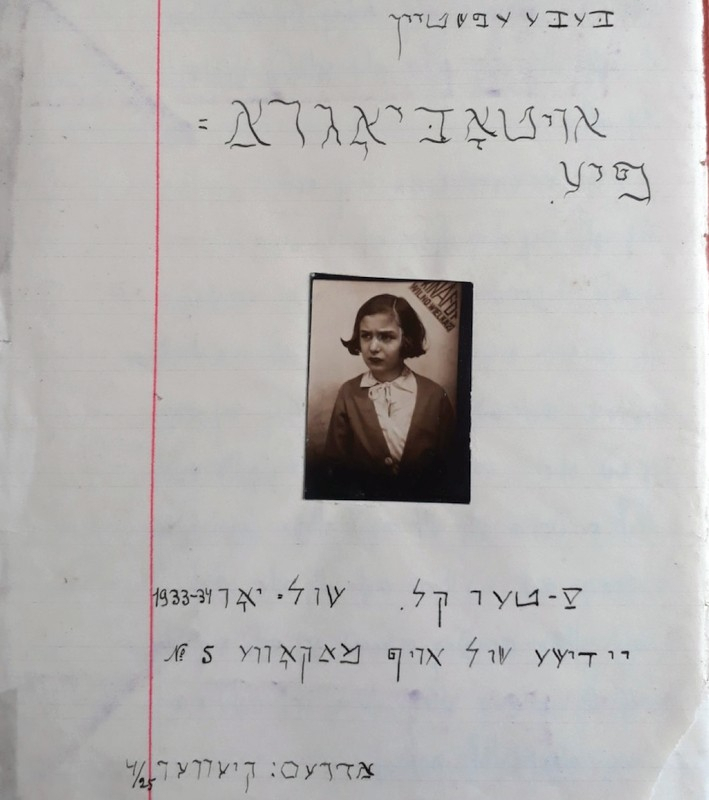 בעבע עפשטיין
אויטאָביאָגראַ=
פיע.
WILNO WIELKA
V-טער קל. שול=יאָר 1933-34
יידישע שול אויף מאַקאָווע № 5
אַדרעס: קיעווער 4/25